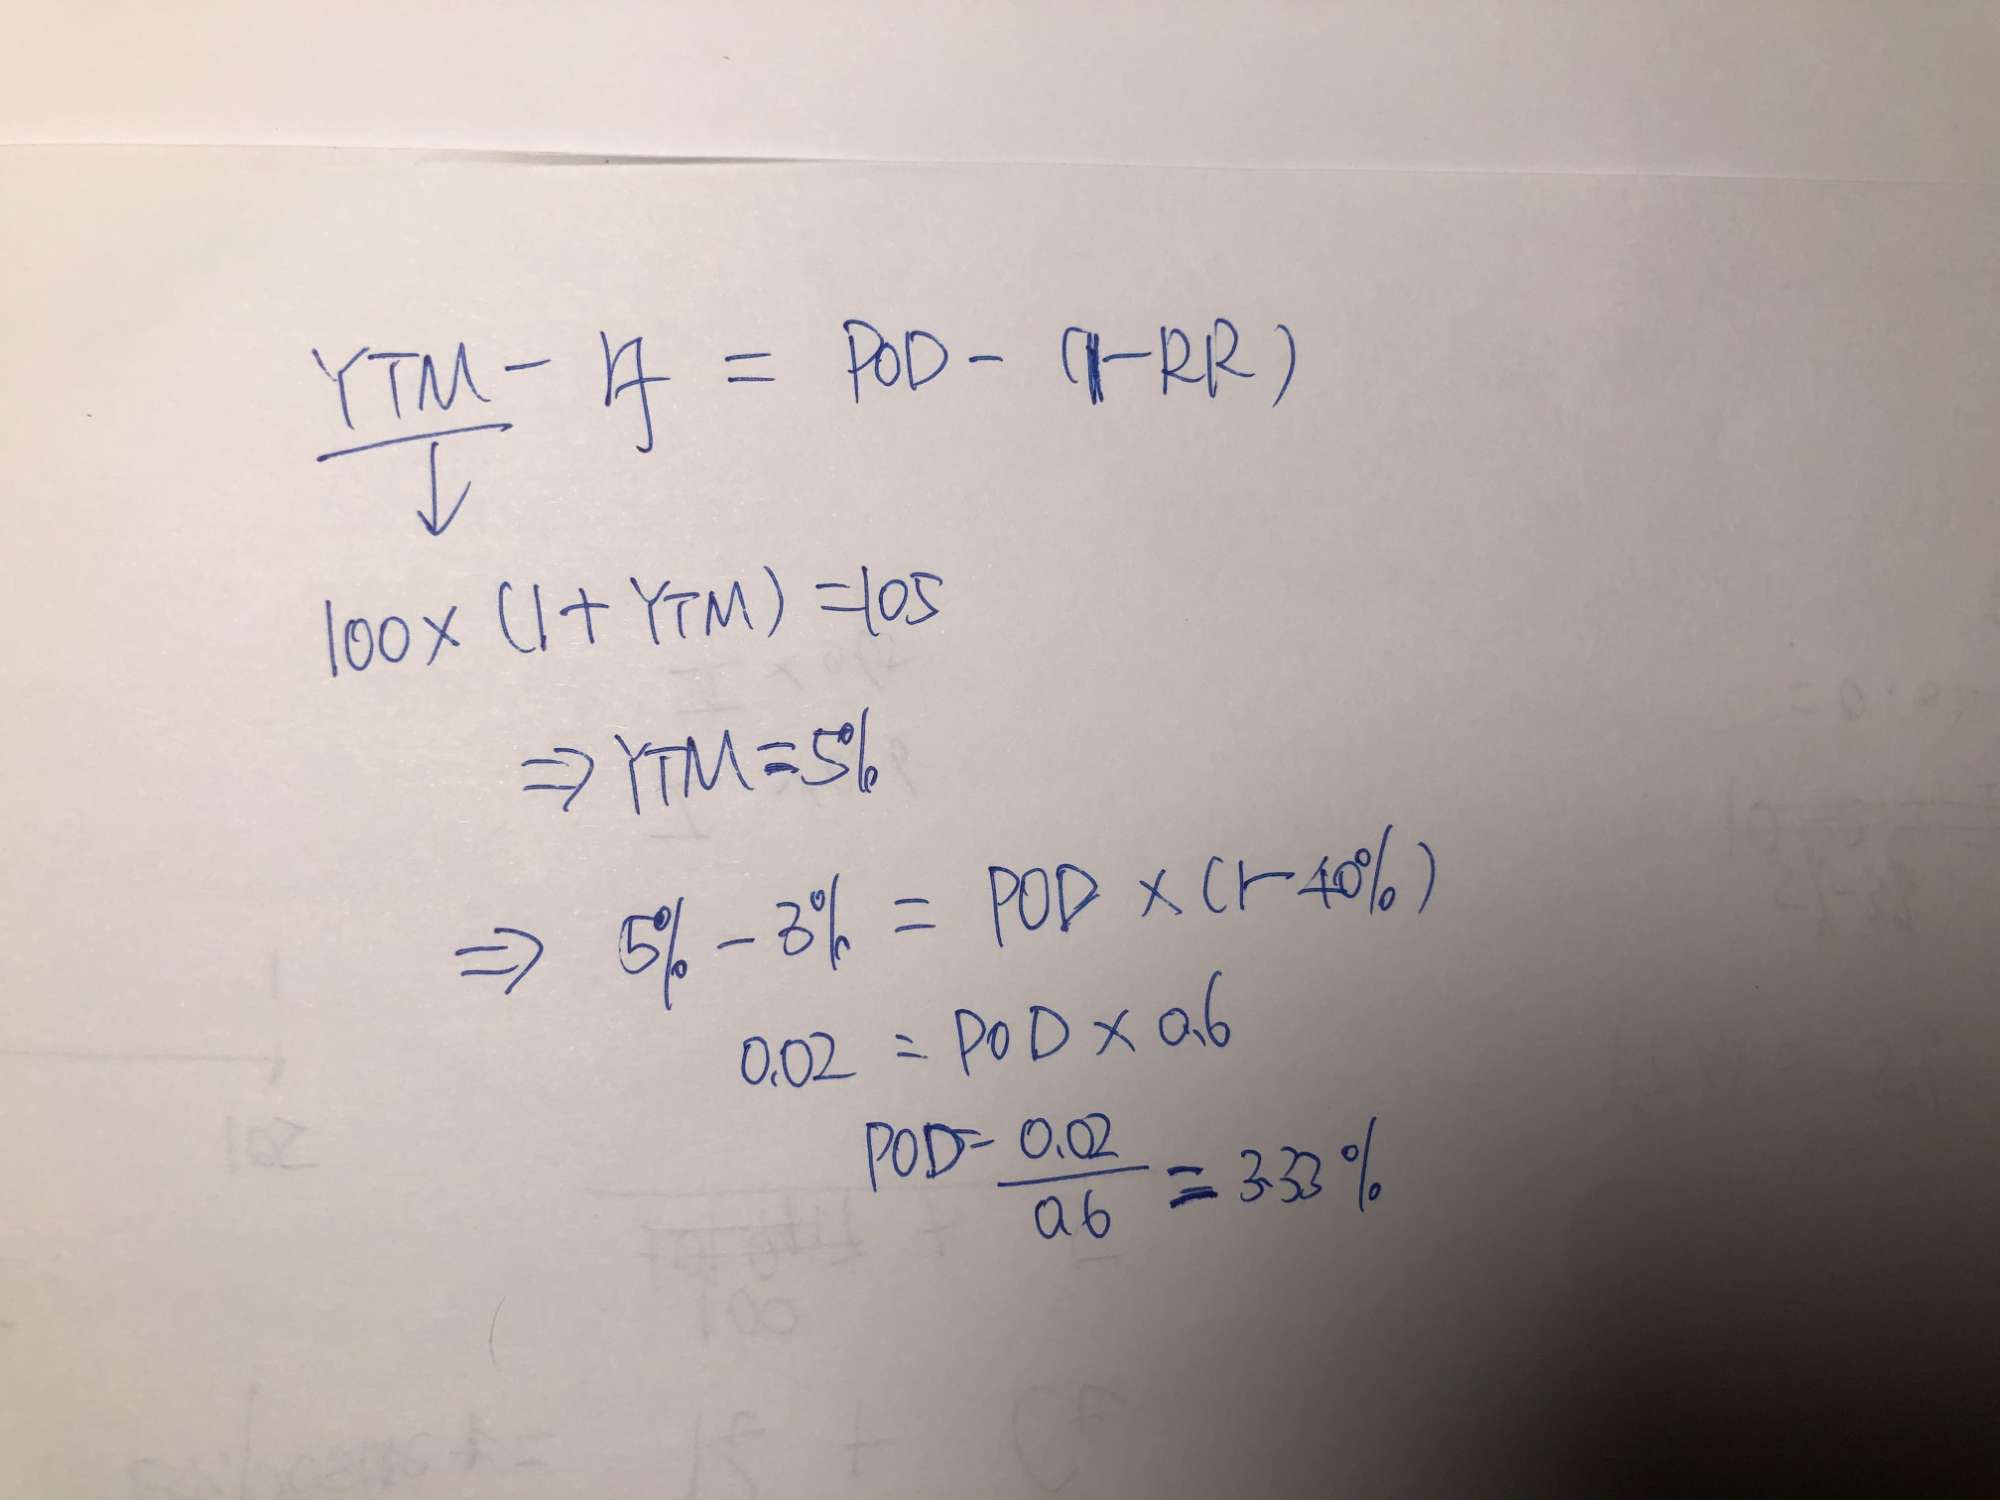 YTM - rf = POD - (1-RR)
↓
100 × (1 + YTM) = 105
⇒ YTM = 5%
⇒ 5% - 3% = POD × (1-40%)
0.02 = POD × 0.6
POD = 0.02 / 0.6 = 3.33%